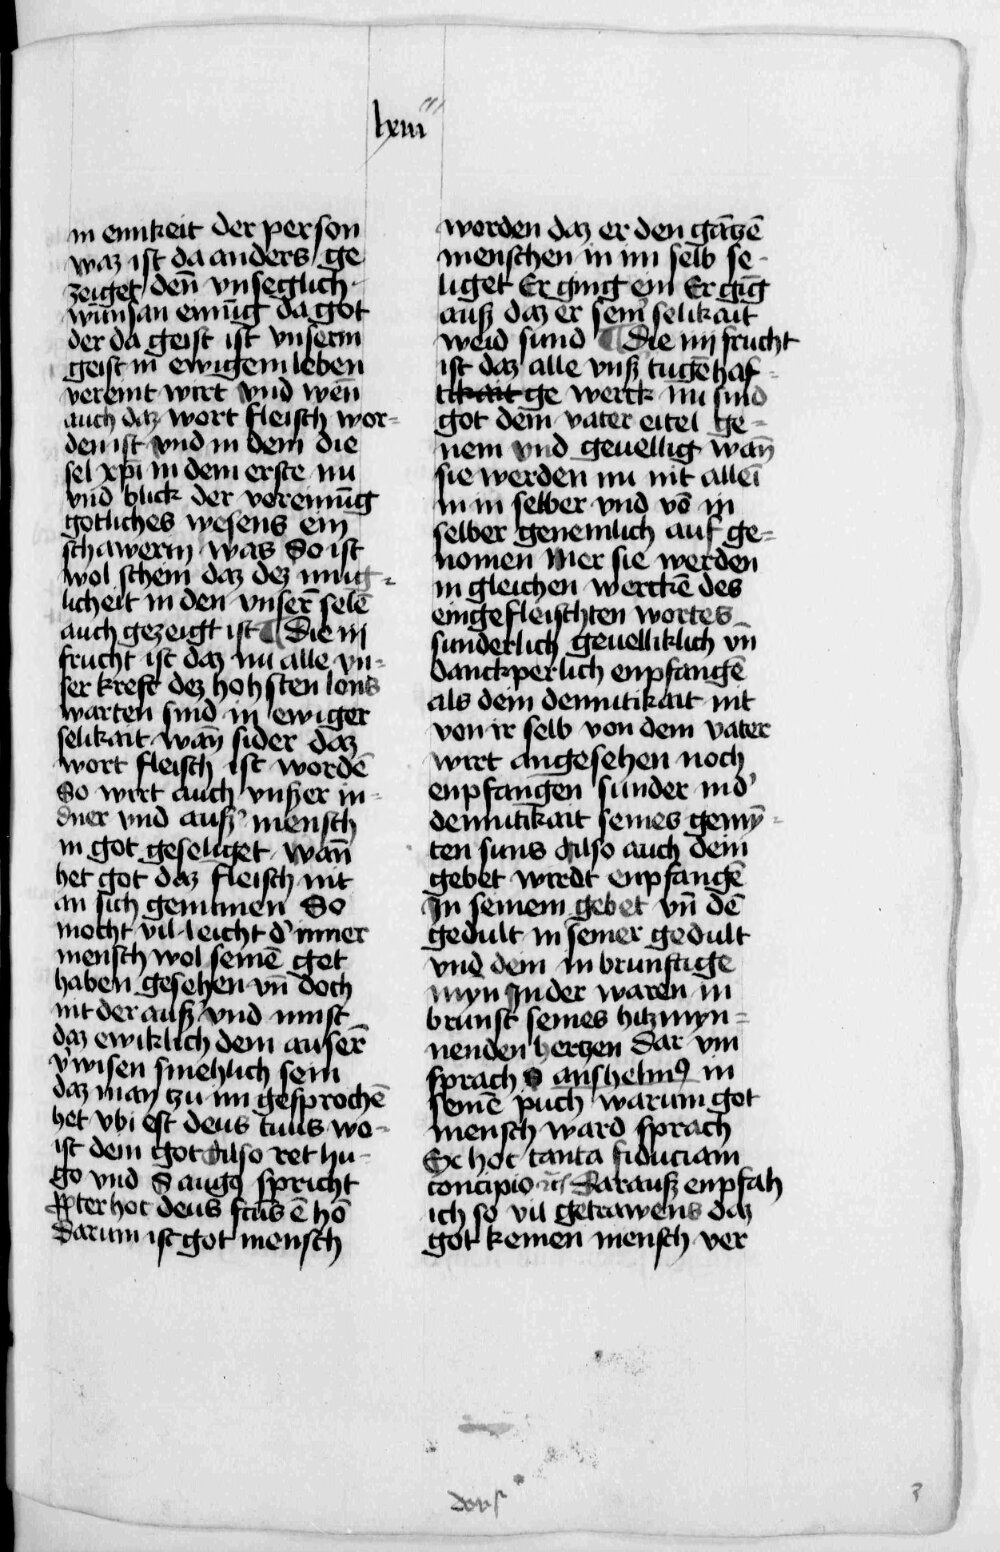 lxiii
in einikeit der person
waz ist da anders ge
zeiget denn̄ vnseglich
wunsan einūg da got
der da geist ist vnserm
geist in ewigem leben
vereint wirt vnd wen̄
auch daz wort fleisch wor-
den ist vnd in dem die
sel xp̄i in dem erste nu
vnd blick der vereinūg
gotliches wesens ein
schawerin was So ist
wol schein daz dez mug-
licheit in den vnser̄ selē
auch gezeigt ist Die iij
frucht ist daz nu alle vn-
ser kreft dez hohsten lons
warten sind in ewiger
selikait wan̄ sider daz
wort fleisch ist wordē
So wirt auch vnser in-
dner vnd auß mensch
in got geseliget wan̄
het got daz fleisch nit
an sich genumen So
mocht vil leicht d' inner
mensch wol seinē got
haben gesehen vn̄ doch
nit der auß' vnd must
daz ewiklich dem auser̄
v'wisen smehlich sein
daz man tzu im gesprochē
het vbi est deus tuus wo-
ist dem got Also ret hu-
go vnd S augꝰ spricht
ꝓpter hoc deus fcūs ē hō
Darum ist got mensch
worden daz er den gātzē
menschen in im selb se-
liget Er ging ein Er gīg
auß daz er sein' selikait
weid fund Die iiij frucht
ist daz alle vnß tugēhaf-
tikait ge werck nu sind
got dem vater eitel ge-
nem vnd geuellig wan̄
sie werden nu nit alleī
in in selber vnd vō in
selber genemlich auf ge-
nomen Mer sie werden
in gleichen werckē des
eingefleischten wortes
sunderlich geuelliklich vn̄
danckperlich enpfangē
als dem demutikait nit
von ir selb von dem vater
wirt angesehen noch
enpfangen sunder in d'
demutikait seines gemȳ-
ten suns Also auch dein
gebet wirdt enpfangē
In seinem gebet vn̄ dē
gedult in seiner gedult
vnd dem in brunstige
myn In der waren in
brunst seines hitz myn-
nenden hertzen Dar vm
sprach S anshelmꝰ in
seinē puch warum got
mensch ward sprach
Ex hoc tanta fiduciam
concipio Darauß enpfah
ich so vil getrawens daz
got keinen mensch ver
3